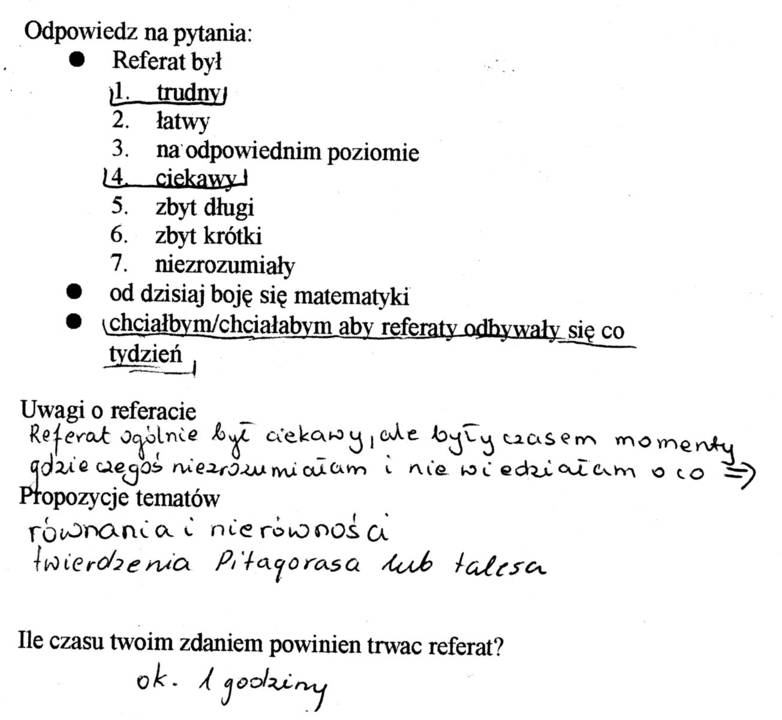 Odpowiedz na pytania:
● Referat był
1. trudny
2. łatwy
3. na odpowiednim poziomie
4. ciekawy
5. zbyt długi
6. zbyt krótki
7. niezrozumiały
● od dzisiaj boję się matematyki
● chciałbym/chciałabym aby referaty odbywały się co
tydzień
Uwagi o referacie
Referat ogólnie był ciekawy, ale były czasem momenty
gdzie czegoś niezrozumiałam i nie wiedziałam o co ⇒
Propozycje tematów
równania i nierówności
twierdzenia Pitagorasa lub talesa
Ile czasu twoim zdaniem powinien trwac referat?
ok. 1 godziny